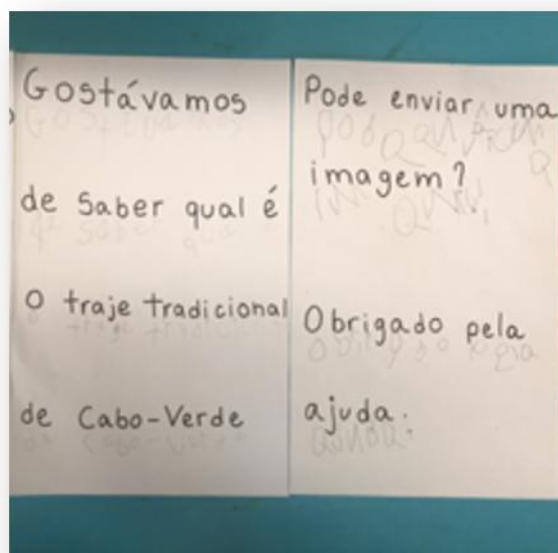 Gostávamos
de saber qual é
o traje tradicional
de Cabo-Verde
Pode enviar uma
imagem?
Obrigado pela
ajuda.